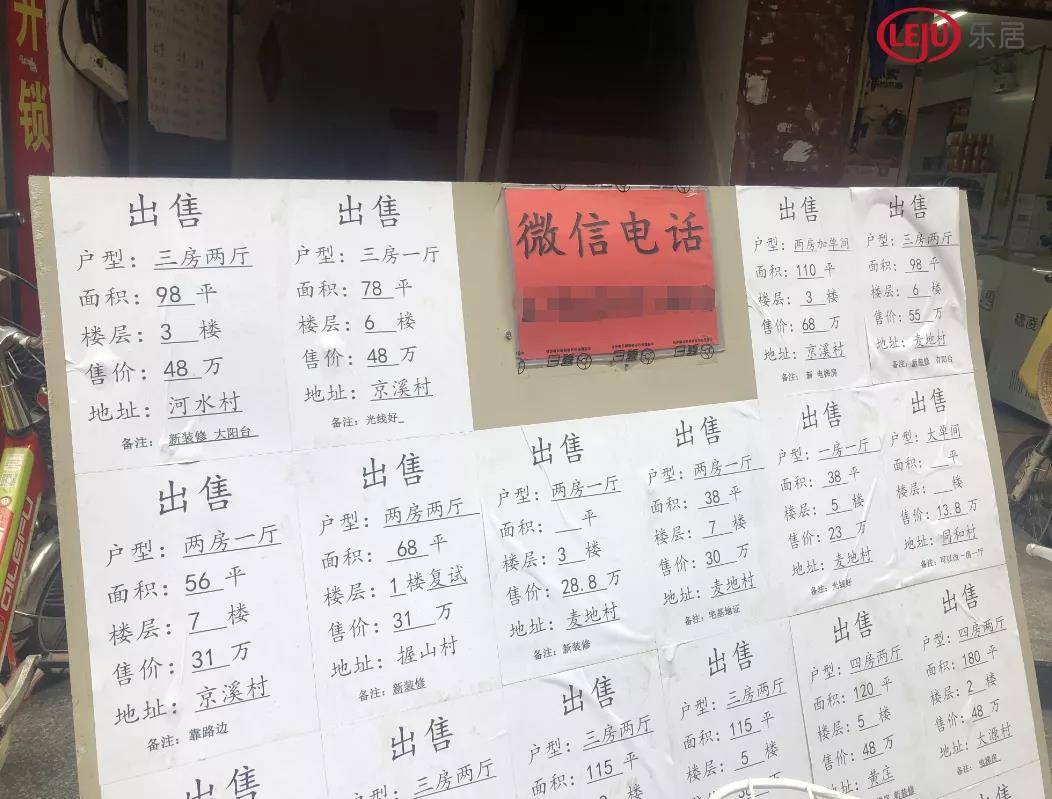 开锁
LEJU 乐居
出售
户型：三房两厅
面积：98 平
楼层：3 楼
售价：48 万
地址：河水村
备注：新装修 大阳台
出售
户型：三房一厅
面积：78 平
楼层：6 楼
售价：48 万
地址：京溪村
备注：光线好
微信电话
出售
户型：两房加单间
面积：110 平
楼层：3 楼
售价：68 万
地址：京溪村
备注：新 电梯房
出售
户型：三房两厅
面积：98 平
楼层：6 楼
售价：55 万
地址：麦地村
备注：新装修 有阳台
出售
户型：两房一厅
面积：56 平
楼层：7 楼
售价：31 万
地址：京溪村
备注：靠路边
出售
户型：两房两厅
面积：68 平
楼层：1 楼复试
售价：31 万
地址：握山村
备注：新装修
出售
户型：两房一厅
面积： 平
楼层：3 楼
售价：28.8 万
地址：麦地村
备注：新装修
出售
户型：两房一厅
面积：38 平
楼层：7 楼
售价：30 万
地址：麦地村
备注：宅基地证
出售
户型：一房一厅
面积：38 平
楼层：5 楼
售价：23 万
地址：麦地村
备注：光线好
出售
户型：大单间
面积： 平
楼层： 楼
售价：13.8 万
地址：同和村
备注：可以改一房一厅
出售
出售
户型：三房两厅
出售
户型：三房两厅
面积：115 平
出售
户型：三房两厅
面积：115 平
楼层：5 楼
出售
户型：四房两厅
面积：120 平
楼层：5 楼
售价：48 万
地址：黄庄
新装修
出售
户型：四房两厅
面积：180 平
楼层：2 楼
售价：48 万
地址：大源村
备注：电梯房
出售